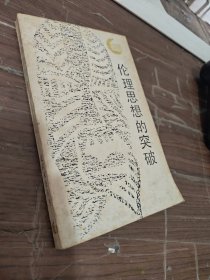 伦理思想的突破